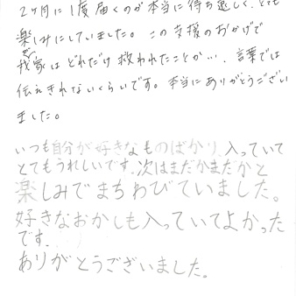 2ヶ月に1度届くのが本当に待ち遠しく、とても
楽しみにしていました。この支援のおかげで
我家はどれだけ救われたことか…、言葉では
伝えきれないくらいです。本当にありがとうござい
ました。
いつも自分が好きなものばかり入っていて
とてもうれしいです。次はまだかまだかと
楽しみでまちわびていました。
好きなおかしも入っていてよかった
です。
ありがとうございました。